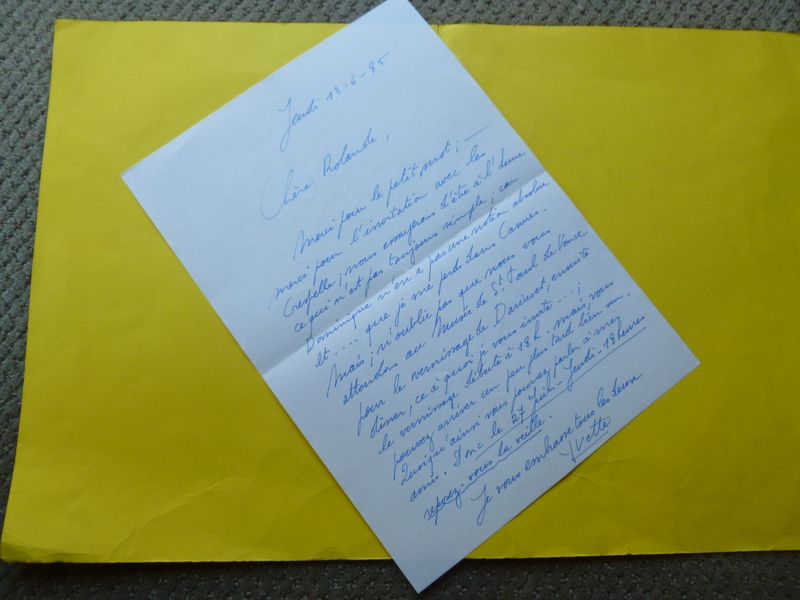 Jeudi 13-6-85
Chère Rolande,
Merci pour le petit mot ; —
merci pour l'invitation avec les
Crespelle ; nous essayerons d'être à l'heure
ce qui n'est pas toujours simple ; car
Dominique n'en a pas une notion absolue
et .... que je me perds dans Cannes.
Mais ; n'oublie pas que nous vous
attendons au Musée de St Paul de Vence
pour le vernissage de ensuite
dîner, ce à quoi je vous invite ... ;
le vernissage débute à 18h. mais, vous
pouvez arriver un peu plus tard bien sûr.
Quoiqu'ainsi vous pouvez parler à mes
amis. Donc le 27 Juin - Jeudi - 18 heures
reposez-vous la veille.
Je vous embrasse tous les deux
Yvette